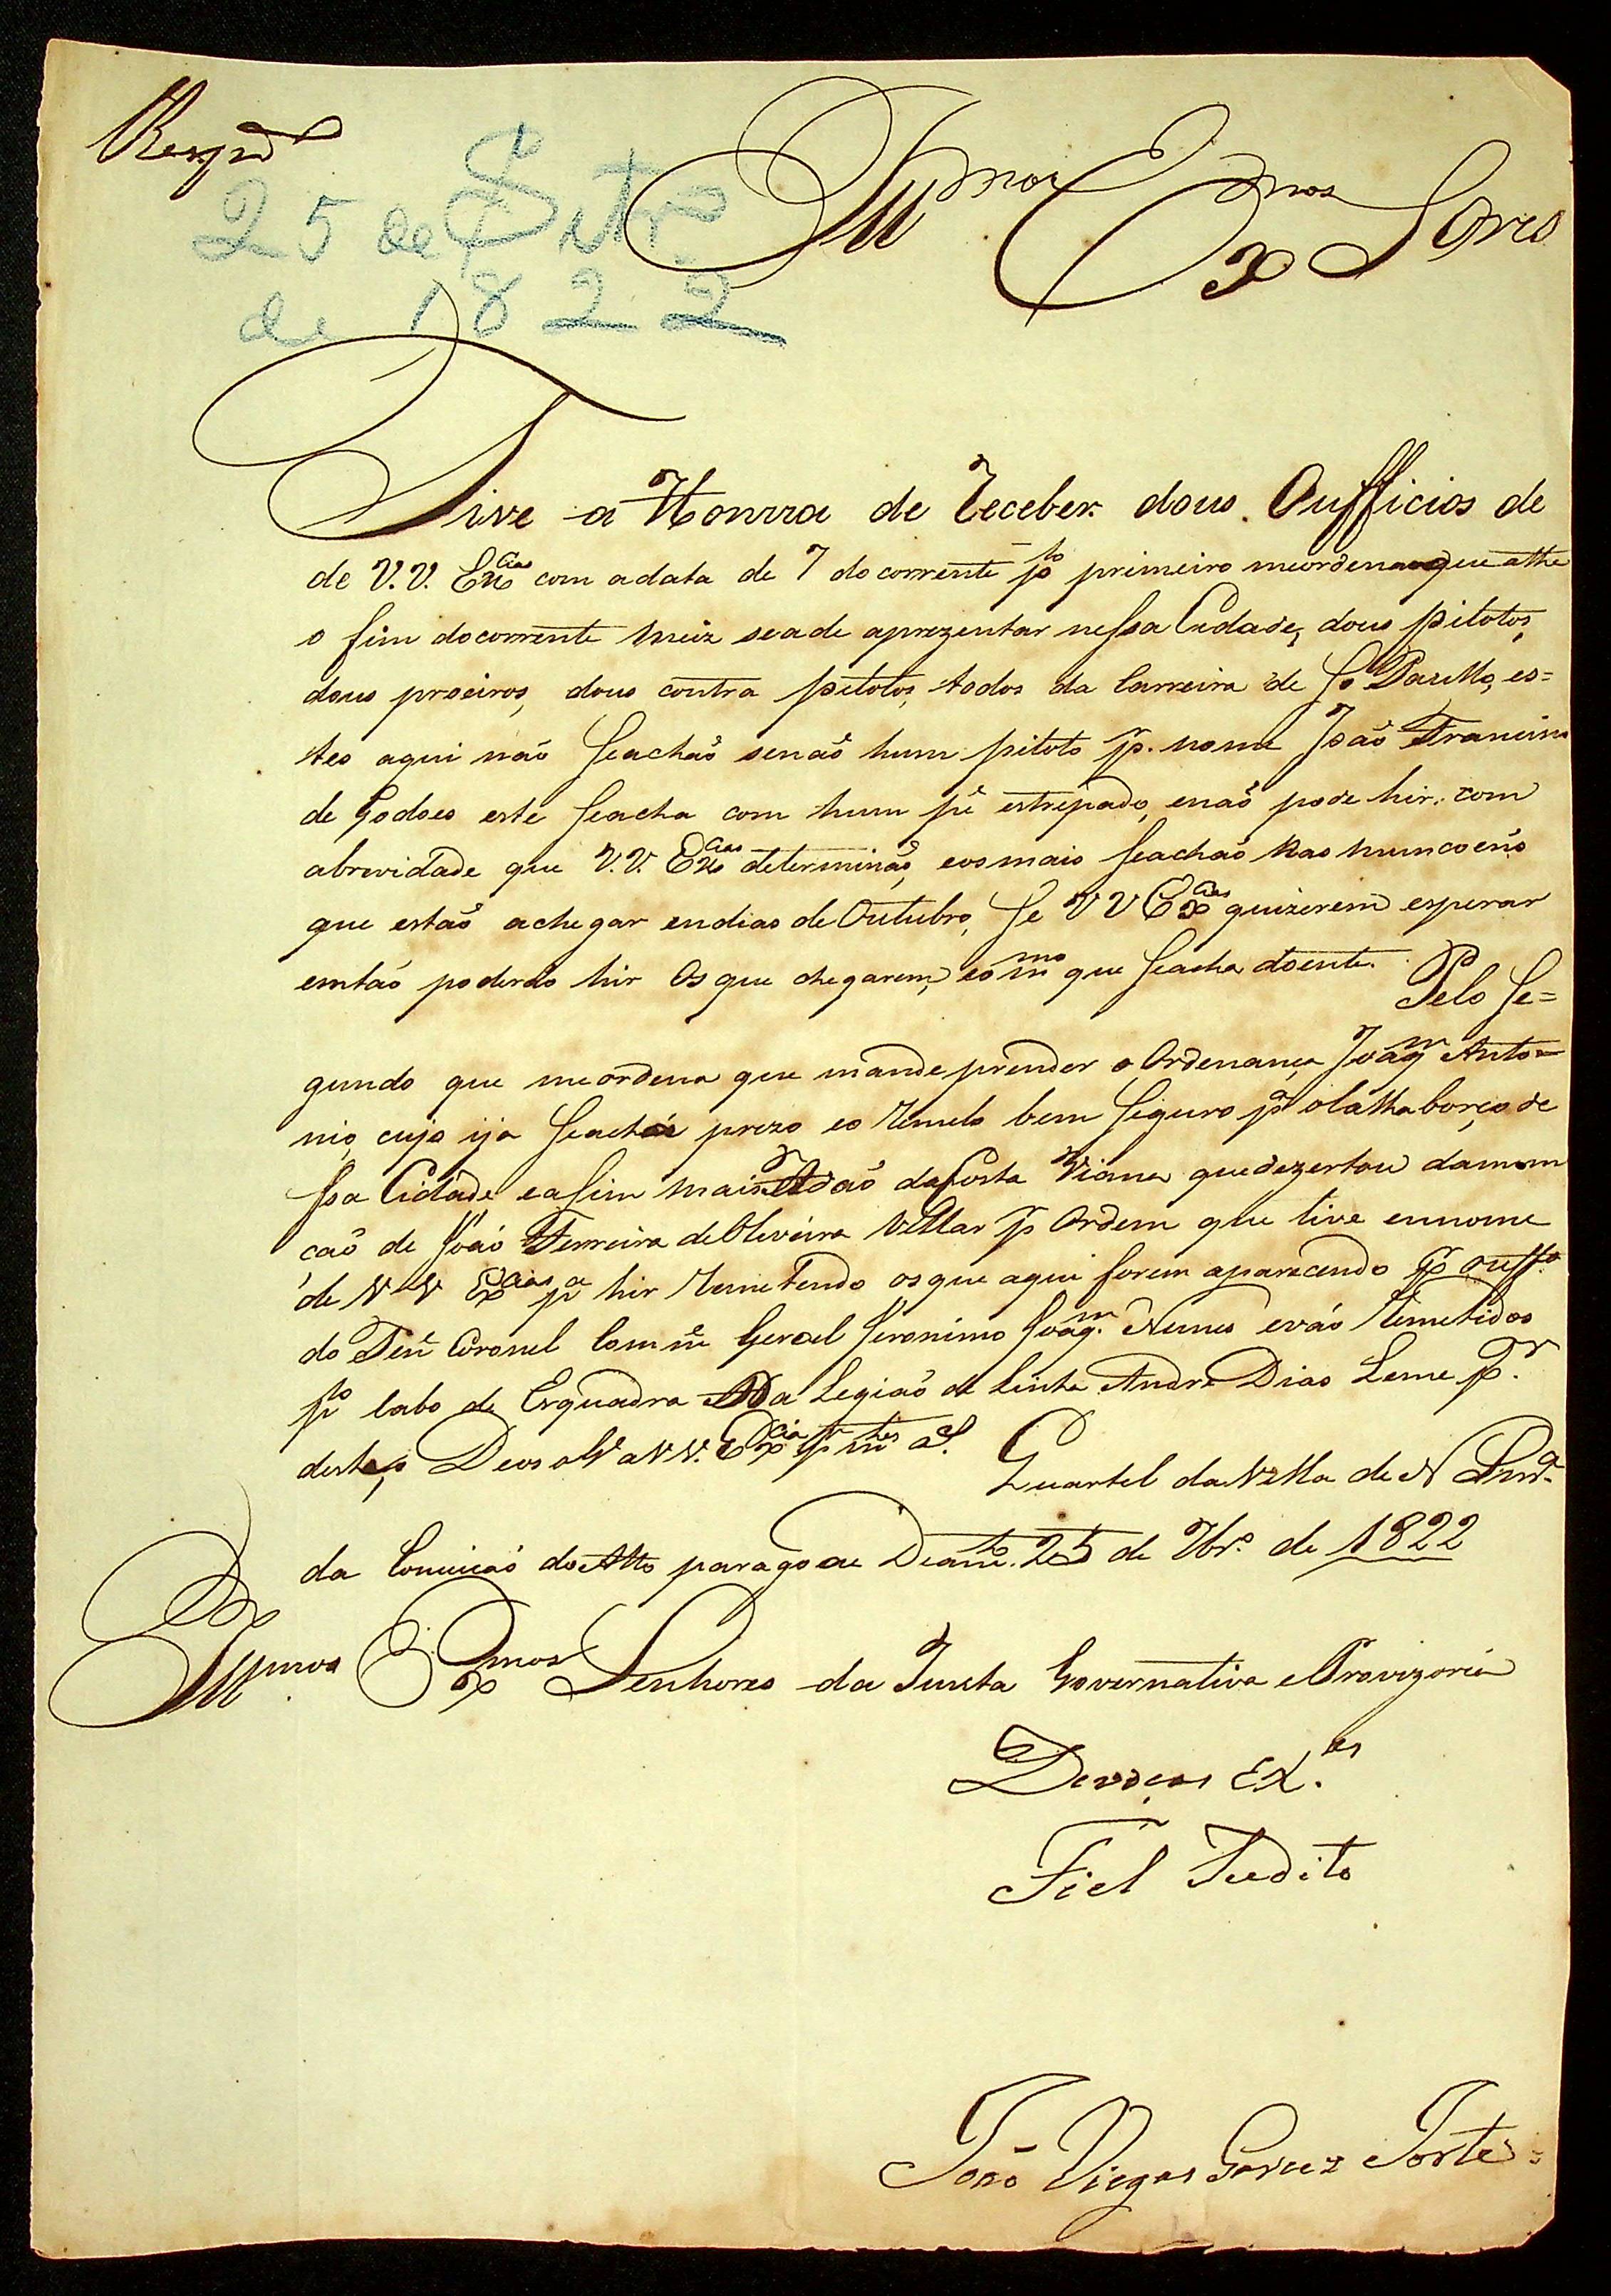 Respd.ᵃ
25 de Setrº
de 1822
Illmos Exmos Snres
Tive a Honrra de Receber dous Oufficios de
de V.V. Exᶜⁱᵃˢ com adata de 7 do corrente plº primeiro meordenaõ que athe
o fim docorrente meiz seade aprezentar nessa Cidade, dous pilotos,
dous proeiros, dous contra pilotos, todos da Carreira de Sº Paullo, es=
tes aqui naõ seachaõ senaõ hum piloto p. nome Joaõ Francisco
de Godoes este seacha com hum pé estripado, enaõ pode hir, com
abrevidade que V.V. Exᶜⁱᵃˢ determinaõ, eosmais seachaõ nas
que estaõ achegar endias de Outubro, se V V Exᶜⁱᵃˢ quizerem esperar
emtaõ poderaõ hir Os que chegarem, eo mᵐᵒ que seacha doente. Pelo se=
gundo que meordena que mande prender o Ordenança Joaqᵐ Anto=
nio, cujo ija seacha prezo eo Remeto bem seguro pᵃ o Calhabouço de
ssa Cidade easim mais Adaõ daCosta Viana quedezertou damom
çaõ de Joaõ Ferreira deOliveira Villar p Ordem que tive ennome
de V V Exᶜⁱᵃˢ pᵃ hir Remetendo osque aqui forem aparecendo p ouffº
do Teñ Coronel Commᵉ Geral Jeronimo Joaqᵐ. Nunes evaõ Remetidos
plº Cabo de Esquadra Da Legiaõ de Linha Andre Dias Leme pʳ
deste, Deos a V.V. Exᶜⁱᵃˢ pʳ mᵗᵉˢ aˢ. Quartel daVilla de N Snrᵃ
da Conceicaõ doAlto paragoae Deamᵗº. 25 de 7brº de 1822
Illmos Exmos Senhores da Junta Governativa eProvizoria
Devoças Exᵃˢ.
Fiel Sudito
Joaõ Viegas Jorte